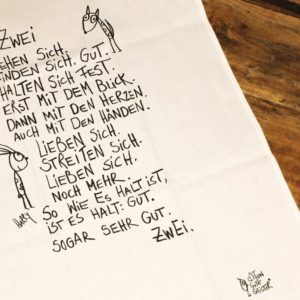 ZWEI
EHEN SICH.
INDEN SICH. GUT.
HALTEN SICH FEST.
ERST MIT DEM BLICK.
DANN MIT DEN HERZEN.
AUCH MIT DEN HÄNDEN.
LIEBEN SICH.
STREITEN SICH.
LIEBEN SICH.
NOCH MEHR.
SO WIE ES HALT IST,
IST ES HALT: GUT.
SOGAR SEHR GUT.
ZWEI.